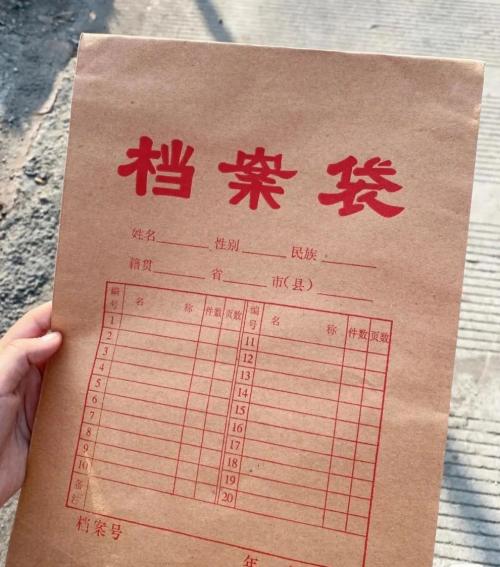 档案袋
姓名 性别 民族
籍贯 省 市(县)
编号 名 称 件数 页数 编号 名 称 件数 页数
1 11
2 12
3 13
4 14
5 15
6 16
7 17
8 18
9 19
10 20
备
档案号
年